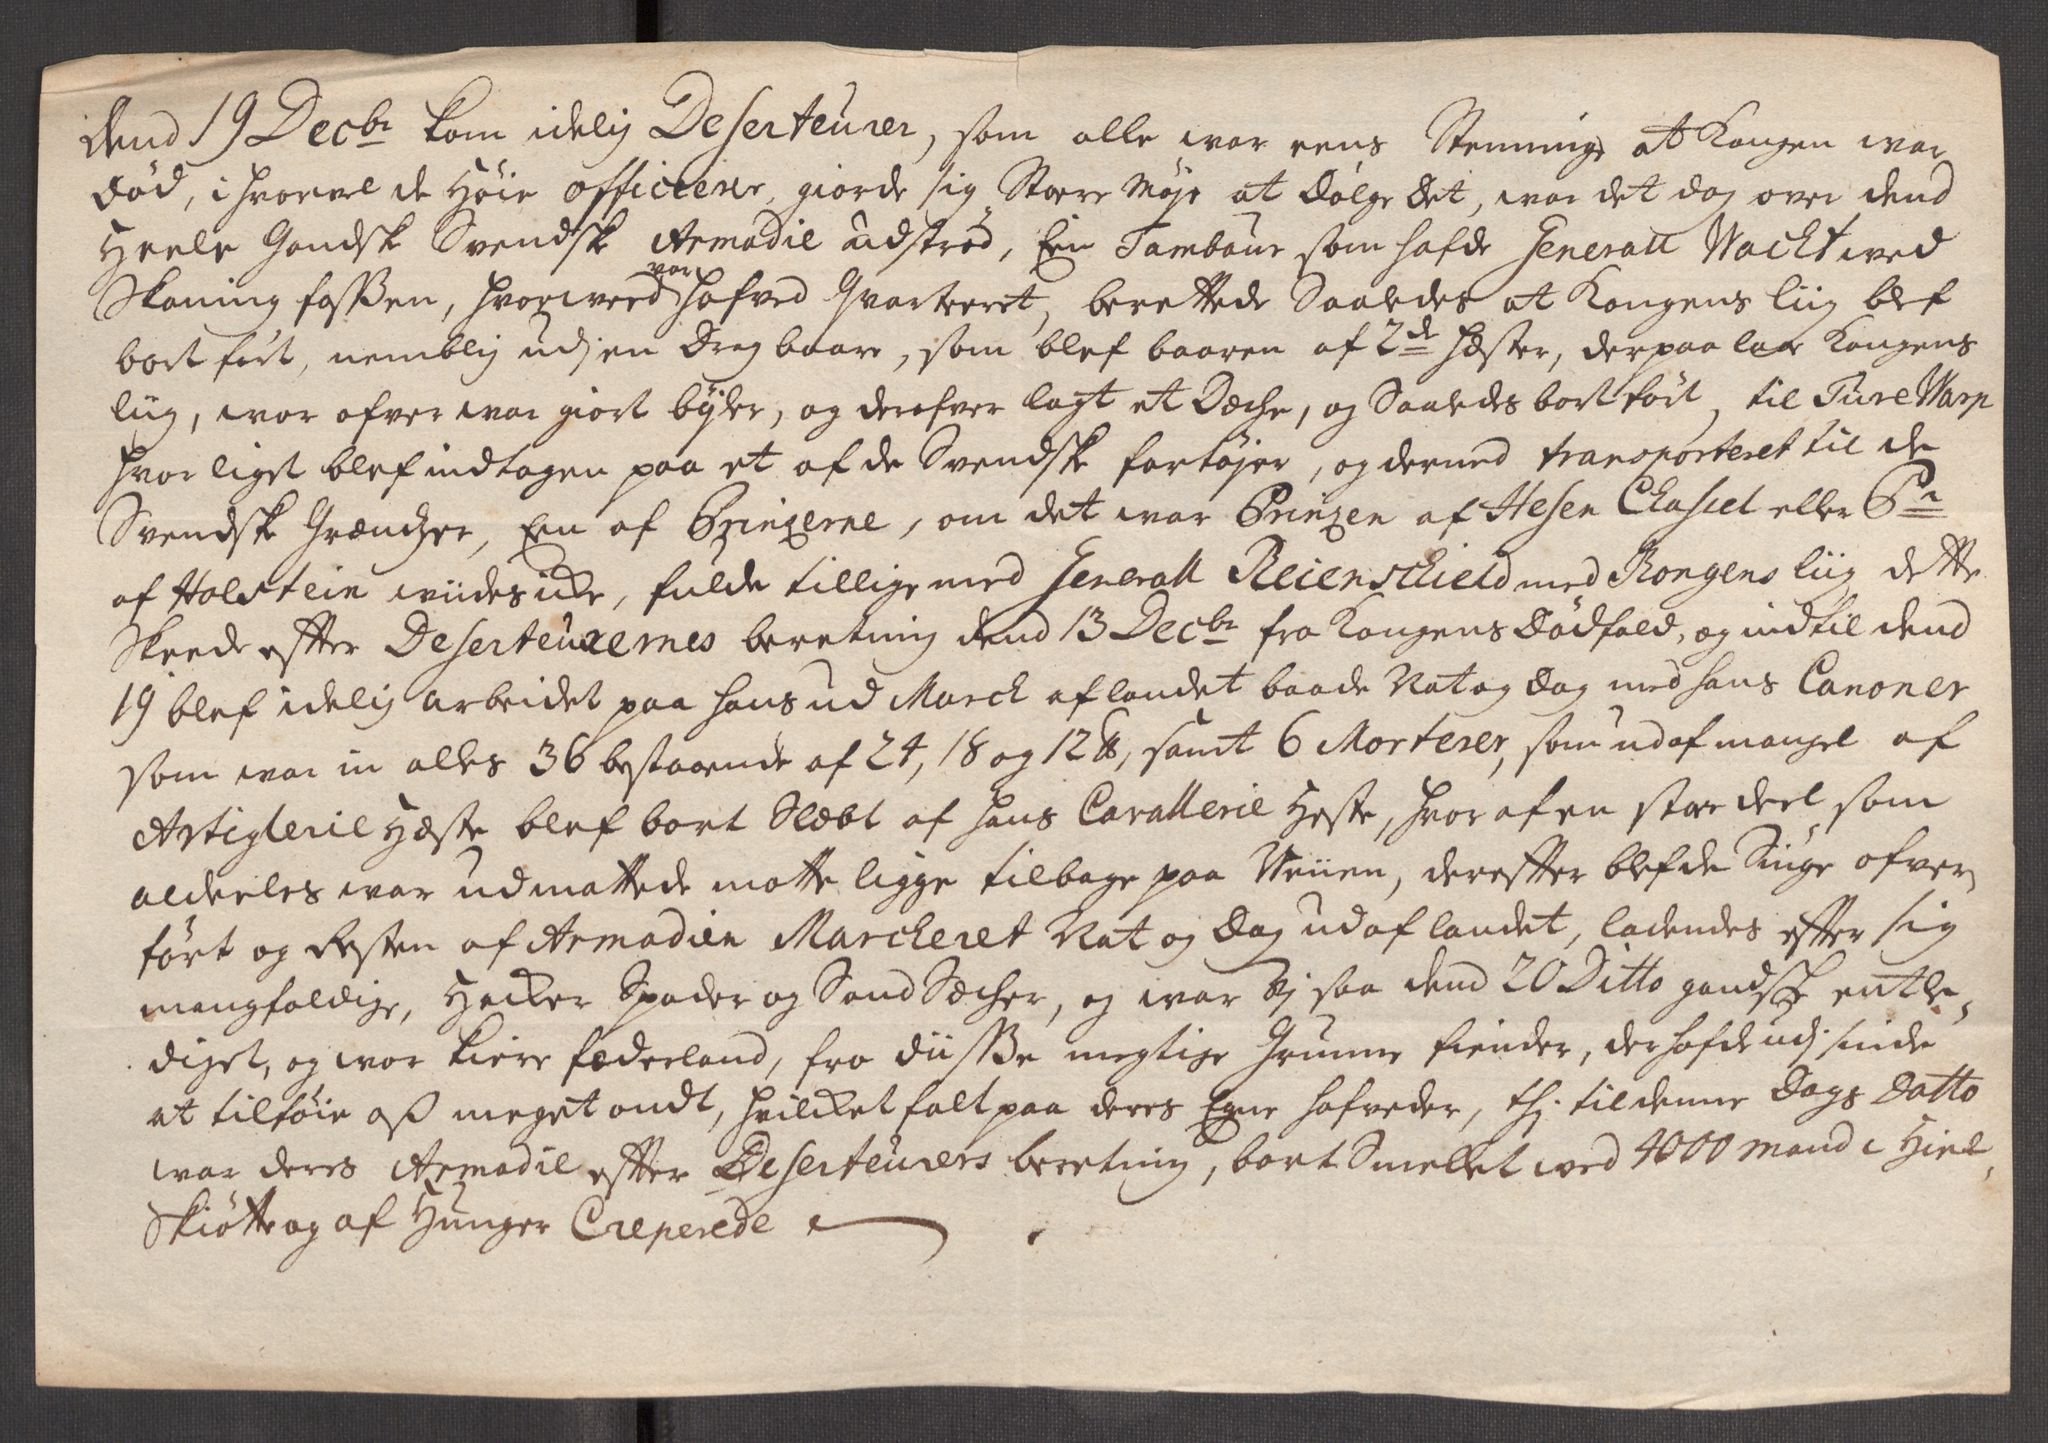 dend 19 Decbr kom idelig Deserteurer, som alle war eens Stemmings at Kongen war
død, i hvorvel de Høie officierer, giorde sig Stoere Møye at dølge det, war det dog over dend
Heele Gandske Svendske Armadie udströd, Een Tambour som hafde Generall Wacht wed
Skaning fossen, hvorwed var hofved Qvarteeret, berettede Saaledes at Kongens liig blef
bort fört, nemblig udj en Drag baare, som blef baaren af 2de hæster, derpaa laae Kongens
liig, wor ofver war giort bøyler, og derofver lagt et Dæche, og Saaledes bort fört, til Ture Warp
hvor liget blef indtagen paa et af de Svendske fartøjer, og dermed transporteret til de
Svendske Grændzer, Een af Prinzerne, om det war Prinzen af Hesen Chassel eller Pr
af Holstein wiides icke, fulde tillige med Generall Reienschield med Kongens liig dette
Skeede effter Deserteurernes beretning dend 13 Decbr fra Kongens Dødfald, og indtil dend
19 blef idelig arbeidet paa hans ud March af landet baade Nat og dag med hans Canoner
som war in alles 36 bestaaende af 24, 18 og 12 ℔, samt 6 Morterer, som udaf mangel af
Artiglerie Hæste blef bort Slæbt af hans Cavallerie Heste, hvor af en stoer deel som
aldeeles war udmattede motte ligge tilbage paa Veiien, dereffter blef de Siuge ofver
fört og Resten af Armadien Marcheret Nat og Dag ud af landet, ladendes effter sig
mangfoldige, Hacker Spader og Sand Sæcher, og war wj saa dend 20 Ditto gandske entle-
diget, og wor kiere fæderland, fra diisse megtige Grumme fiender, der hafde udj sinde
at tilføie oß meget ondt, hvilcket falt paa deres Egne hofveder, thj til denne Dags Datto
war deres Armadie effter Deserteurers beretning, bort Smeltet wed 4000 mand i Hiel-
Skiötte og af Hunger Creperede